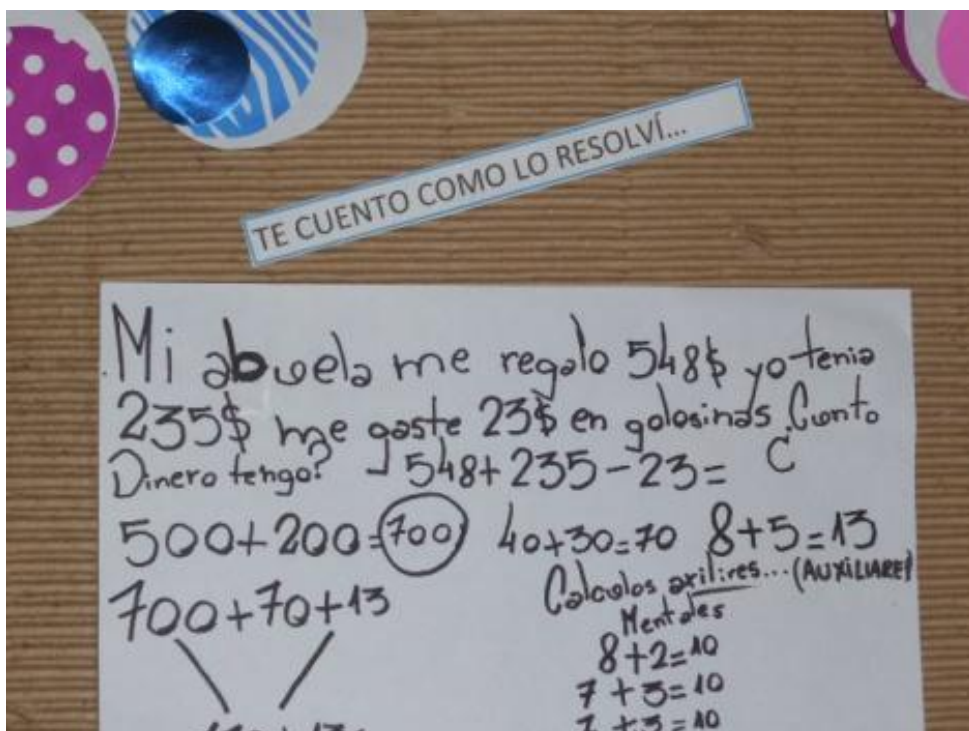 TE CUENTO COMO LO RESOLVÍ...
Mi abuela me regalo 548$ yo tenia
235$ me gaste 23$ en golosinas Cuonto
Dinero tengo? 548+235-23= C
500+200=700 40+30=70 8+5=13
700+70+13
Calculos axilires... (AUXILIARE)
Mentales
8+2=10
7+3=10
7+3=10